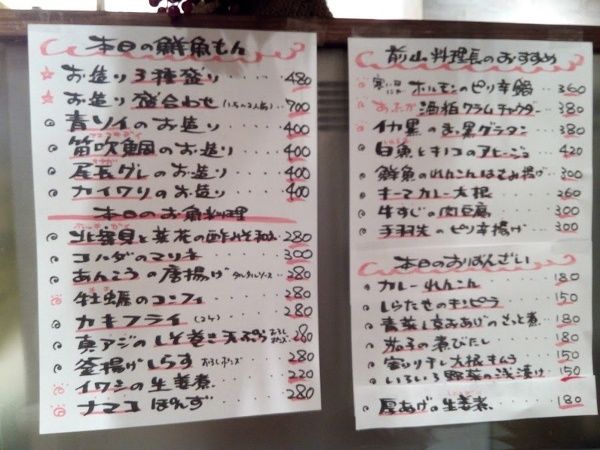 本日の鮮魚もん
お造り3種盛り 480
お造り盛合わせ 700
青ソイのお造り 400
笛吹鯛のお造り 400
尾長グレのお造り 400
カイワリのお造り 400
本日のお魚料理
北寄貝と菜花の酢みそ和え 280
コハダのマリネ 300
あんこうの唐揚げ タルタルソース 280
牡蠣のコンフィ 280
カキフライ (2ケ) 280
真アジのしそ巻き天ぷら おろしポン酢 280
釜揚げしらす おろしポンズ 280
イワシの生姜煮 220
ナマコぽんず 280
前山料理長のおすすめ
ホルモンのピリ辛鍋 360
酒粕クラムチャウダー 380
イカ墨のまっ黒グラタン 380
白魚とキノコのアヒージョ 420
鮮魚のれんこんはさみ揚げ 300
キーマカレー大根 260
牛すじの肉豆腐 300
手羽先のピリ辛揚げ 300
本日のおばんざい
カレーれんこん 180
しらたきのキンピラ 150
青菜と京あげのさっと煮 180
茄子の煮びたし 180
切り干し大根キムチ 150
いろいろ野菜の浅漬け 150
厚あげの生姜煮 180